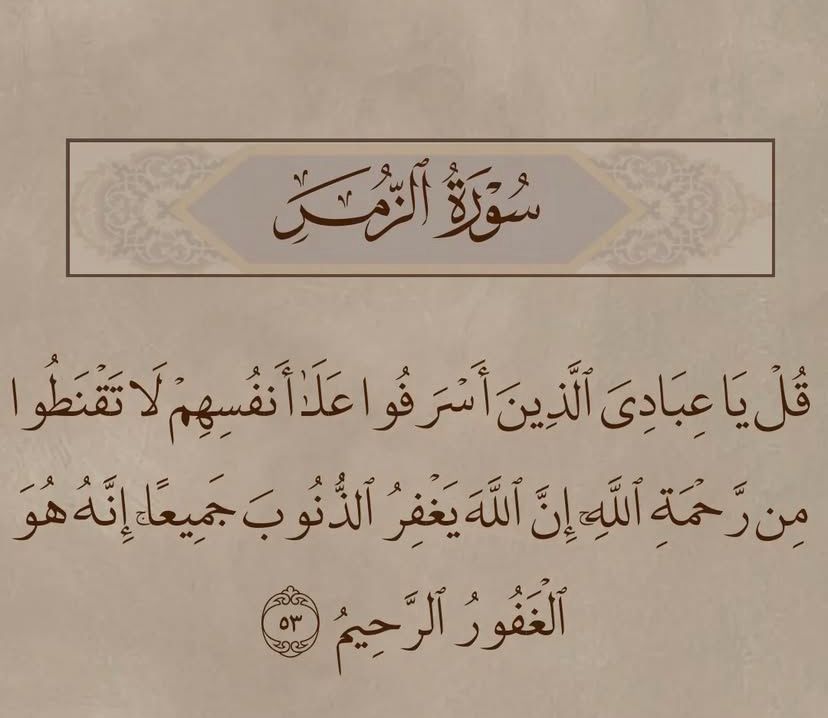 سُوْرَةُ ٱلزُّمَرِ
قُلْ يَا عِبَادِىَ ٱلَّذِينَ أَسْرَفُوا عَلَىٰ أَنفُسِهِمْ لَا تَقْنَطُوا
مِن رَّحْمَةِ ٱللَّهِۚ إِنَّ ٱللَّهَ يَغْفِرُ ٱلذُّنُوبَ جَمِيعًاۚ إِنَّهُ هُوَ
ٱلْغَفُورُ ٱلرَّحِيمُ ٥٣